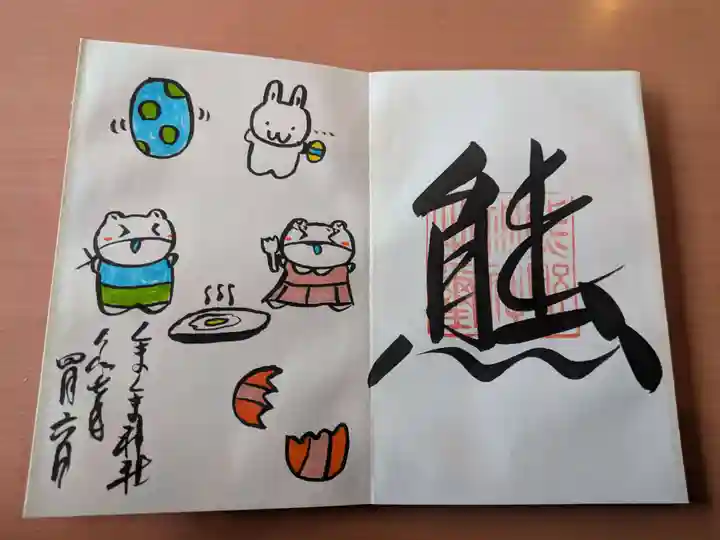 熊
くまくま神社
令和七年
四月六日